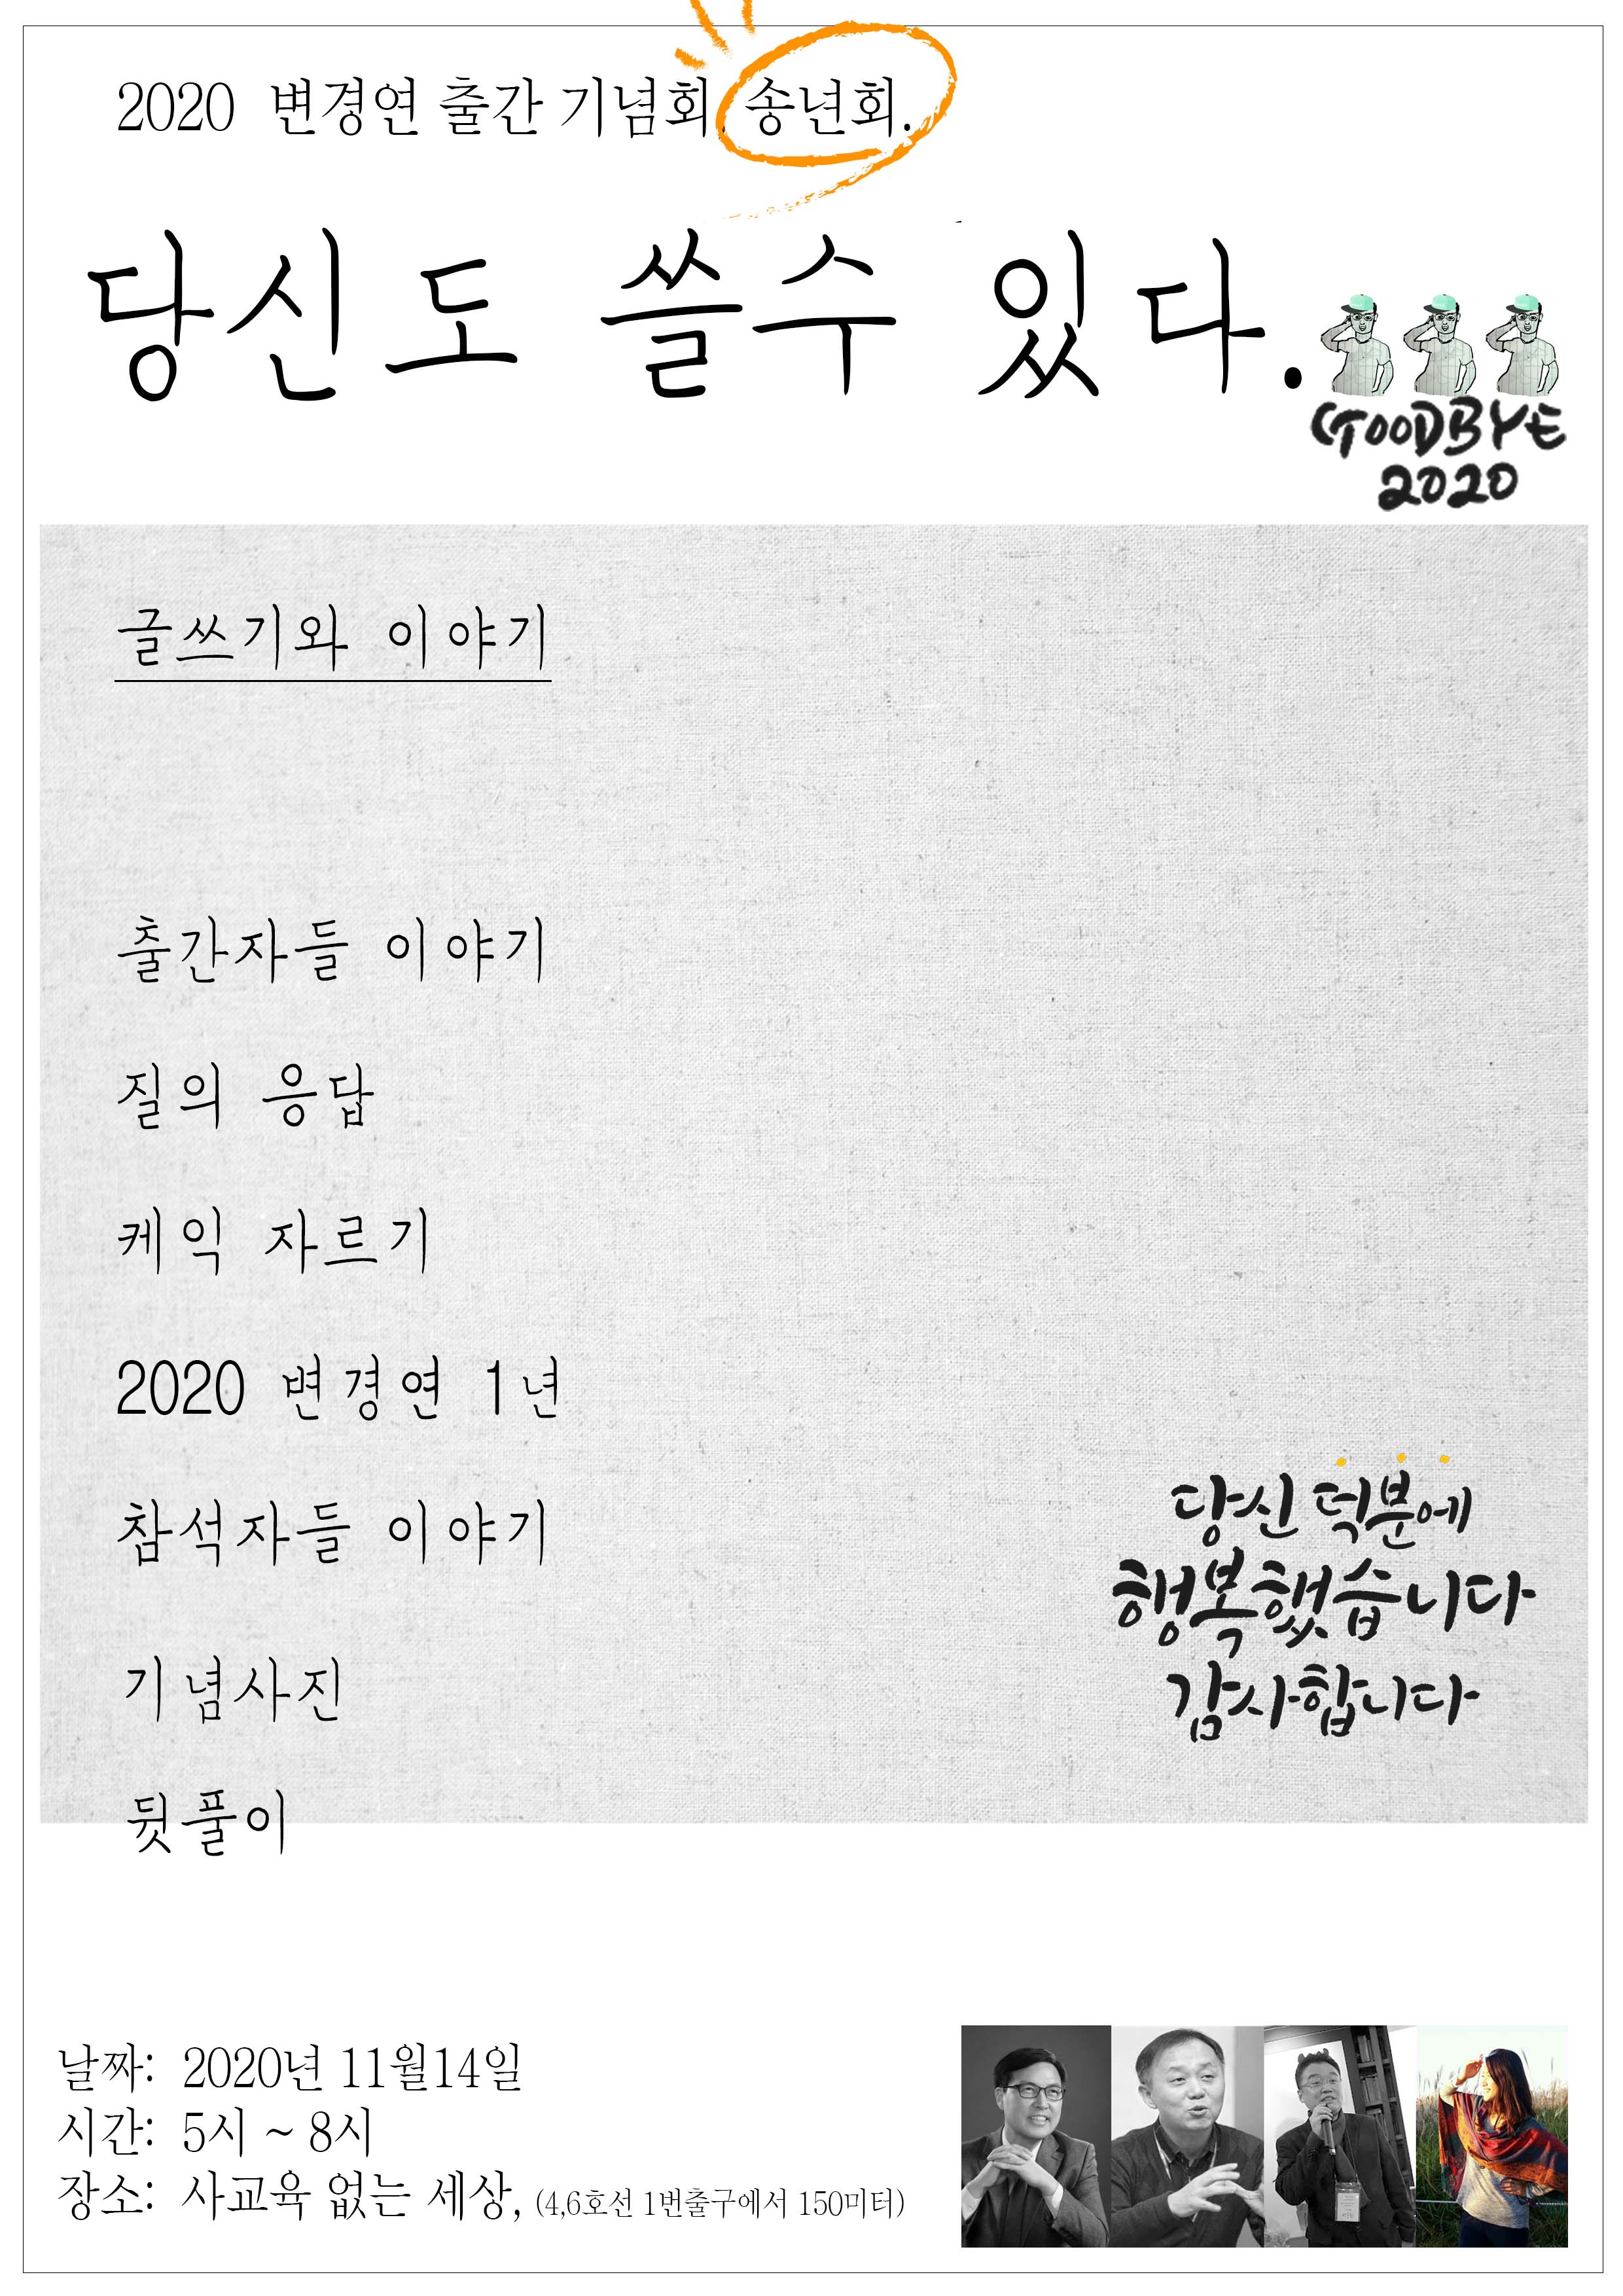 2020 변경연 출간 기념회, 송년회.
당신도 쓸수 있다.
GOODBYE
2020
글쓰기와 이야기
출간자들 이야기
질의 응답
케익 자르기
2020 변경연 1년
참석자들 이야기
기념사진
뒷풀이
당신 덕분에
행복했습니다
감사합니다
날짜: 2020년 11월14일
시간: 5시 ~ 8시
장소: 사교육 없는 세상, (4,6호선 1번출구에서 150미터)